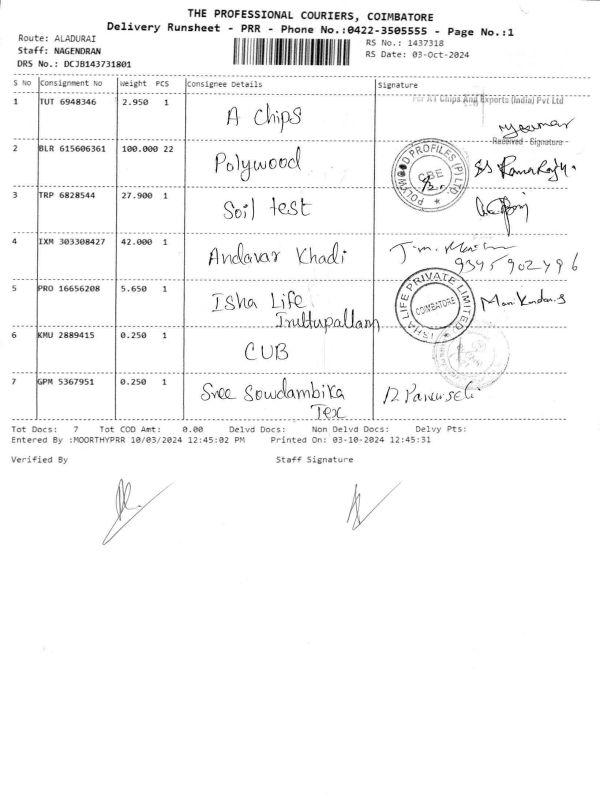 THE PROFESSIONAL COURIERS, COIMBATORE
Delivery Runsheet - PRR - Phone No.:0422-3505555 - Page No.:1
Route: ALADURAI
RS No.: 1437318
Staff: NAGENDRAN
RS Date: 03-Oct-2024
DRS No.: DCJB143731801
S No Consignment No Weight PCS Consignee Details Signature
1 TUT 6948346 2.950 1 A Chips
Chips And Exports (India) Pvt Ltd
Received - Signature
2 BLR 615606361 100.000 22 Polywood
POLYWOOD PROFILES (P) LTD
CBE
3 TRP 6828544 27.900 1 Soil test
4 IXM 303308427 42.000 1 Andavar Khadi
9345902496
5 PRO 16656208 5.650 1 Isha Life
Iruttupallam
ISHA LIFE PRIVATE LIMITED
COIMBATORE
6 KMU 2889415 0.250 1 CUB
7 GPM 5367951 0.250 1 Sree Sowdambika
Tex
Tot Docs: 7 Tot COD Amt: 0.00 Delvd Docs: Non Delvd Docs: Delvy Pts:
Entered By :MOORTHYPRR 10/03/2024 12:45:02 PM Printed On: 03-10-2024 12:45:31
Verified By Staff Signature